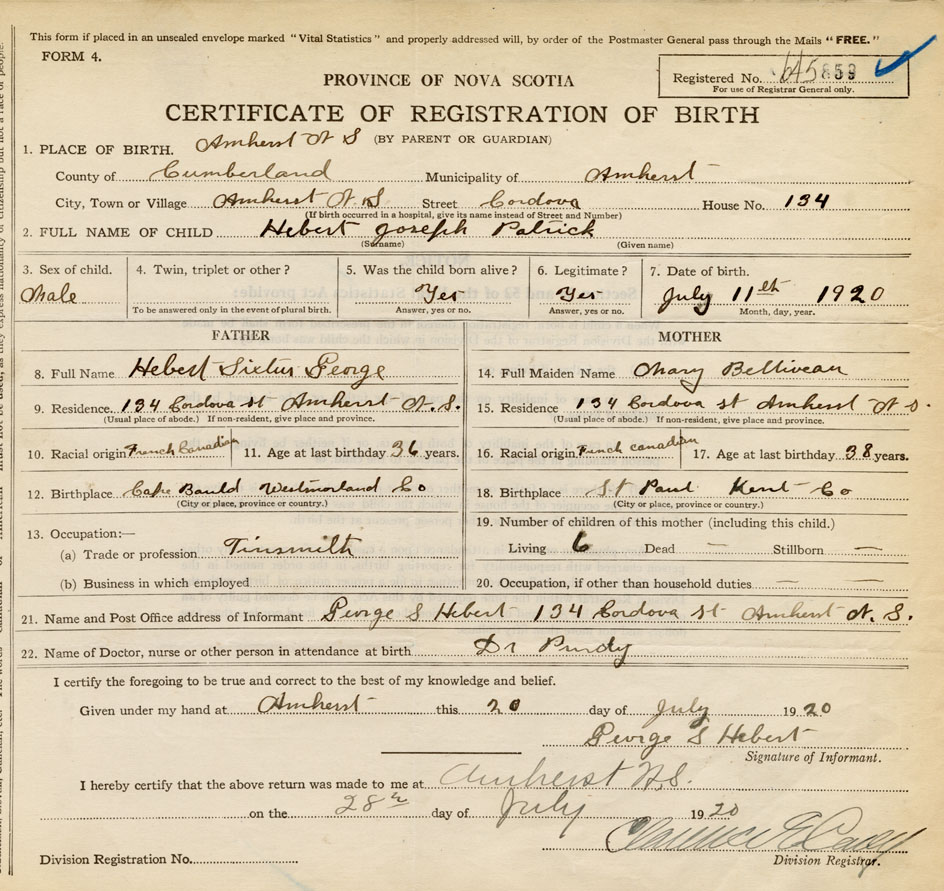 This form if placed in an unsealed envelope marked "Vital Statistics" and properly addressed will, by order of the Postmaster General pass through the Mails "FREE."
FORM 4.
Registered No. 645859
For use of Registrar General only.
PROVINCE OF NOVA SCOTIA
CERTIFICATE OF REGISTRATION OF BIRTH
(BY PARENT OR GUARDIAN)
1. PLACE OF BIRTH. Amherst N S
County of Cumberland Municipality of Amherst
City, Town or Village Amherst N.S Street Cordova House No. 134
(If birth occurred in a hospital, give its name instead of Street and Number)
2. FULL NAME OF CHILD Hebert Joseph Patrick
(Surname) (Given name)
3. Sex of child. 4. Twin, triplet or other? 5. Was the child born alive? 6. Legitimate? 7. Date of birth.
Male Yes Yes July 11th 1920
To be answered only in the event of plural birth. Answer, yes or no. Answer, yes or no. Month, day, year.
FATHER
8. Full Name Hebert Sixtus George
9. Residence. 134 Cordova st Amherst N.S.
(Usual place of abode.) If non-resident, give place and province.
10. Racial origin French Canadian 11. Age at last birthday 36 years.
12. Birthplace Cape Bauld Westmorland Co
(City or place, province or country.)
13. Occupation:—
(a) Trade or profession Tinsmith
(b) Business in which employed
MOTHER
14. Full Maiden Name Mary Belliveau
15. Residence 134 Cordova st Amherst N S.
(Usual place of abode.) If non-resident, give place and province.
16. Racial origin French canadian 17. Age at last birthday 38 years.
18. Birthplace St Paul Kent Co
(City or place, province or country.)
19. Number of children of this mother (including this child.)
Living 6 Dead — Stillborn —
20. Occupation, if other than household duties — —
21. Name and Post Office address of Informant George S Hebert 134 Cordova st Amherst N. S.
22. Name of Doctor, nurse or other person in attendance at birth Dr Purdy
I certify the foregoing to be true and correct to the best of my knowledge and belief.
Given under my hand at Amherst this 20 day of July 1920
George S Hebert
Signature of Informant.
I hereby certify that the above return was made to me at Amherst N.S.
on the 28th day of July 1920
Division Registration No.
Division Registrar.